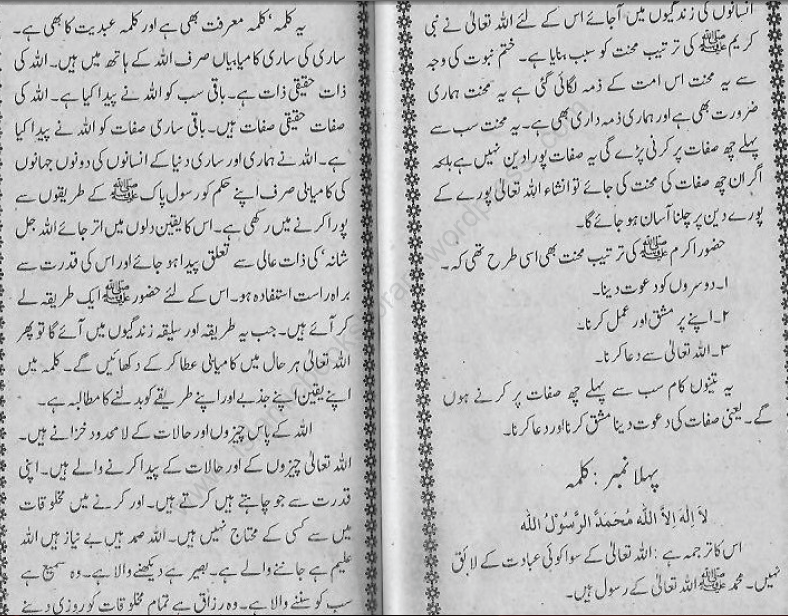 انسانوں کی زندگیوں میں آجائے اس کے لئے اللہ تعالیٰ نے نبی
کریم ﷺ کی ترتیب محنت کو سبب بنایا ہے۔ ختم نبوت کی وجہ
سے یہ محنت اس امت کے ذمہ لگائی گئی ہے یہ محنت ہماری
ضرورت بھی ہے اور ہماری ذمہ داری بھی ہے۔ یہ محنت سب سے
پہلے چھ صفات پر کرنی پڑے گی یہ صفات پورا دین نہیں ہے بلکہ
اگر ان چھ صفات کی محنت کی جائے تو انشاء اللہ تعالیٰ پورے کے
پورے دین پر چلنا آسان ہو جائے گا۔
حضور اکرم ﷺ کی ترتیب محنت بھی اسی طرح تھی کہ۔
۱۔ دوسروں کو دعوت دینا۔
۲۔ اپنے پر مشق اور عمل کرنا۔
۳۔ اللہ تعالیٰ سے دعا کرنا۔
یہ تینوں کام سب سے پہلے چھ صفات پر کرنے ہوں
گے۔ یعنی صفات کی دعوت دینا مشق کرنا اور دعا کرنا۔
پہلا نمبر : کلمہ
لاَ اِلٰهَ اِلاَّ اللّٰه مُحَمَدَّ الرَّسُوْلُ اللّٰه
اس کا ترجمہ ہے : اللہ تعالیٰ کے سوا کوئی عبادت کے لائق
نہیں۔ محمد ﷺ اللہ تعالیٰ کے رسول ہیں۔
یہ کلمہ ‘ کلمہ معرفت بھی ہے اور کلمہ عبدیت کا بھی ہے۔
ساری کی ساری کامیابیاں صرف اللہ کے ہاتھ میں ہیں۔ اللہ کی
ذات حقیقی ذات ہے۔ باقی سب کو اللہ نے پیدا کیا ہے۔ اللہ کی
صفات حقیقی صفات ہیں۔ باقی ساری صفات کو اللہ نے پیدا کیا
ہے۔ اللہ نے ہماری اور ساری دنیا کے انسانوں کی دونوں جہانوں
کی کامیابی صرف اپنے حکم کو رسول پاک ﷺ کے طریقوں سے
پورا کرنے میں رکھی ہے۔ اس کا یقین دلوں میں اتر جائے اللہ جل
شانہ‘ کی ذات عالی سے تعلق پیدا ہو جائے اور اس کی قدرت سے
براہ راست استفادہ ہو۔ اس کے لئے حضور ﷺ ایک طریقہ لے
کر آئے ہیں۔ جب یہ طریقہ اور سلیقہ زندگیوں میں آئے گا تو پھر
اللہ تعالیٰ ہر حال میں کامیابی عطا کر کے دکھائیں گے۔ کلمہ میں
اپنے یقین اپنے جذبے اور اپنے طریقے کو بدلنے کا مطالبہ ہے۔
اللہ کے پاس چیزوں اور حالات کے لامحدود خزانے ہیں۔
اللہ تعالیٰ چیزوں کے اور حالات کے پیدا کرنے والے ہیں۔ اپنی
قدرت سے جو چاہتے ہیں کرتے ہیں۔ اور کرنے میں مخلوقات
میں سے کسی کے محتاج نہیں ہیں۔ اللہ صمد ہیں بے نیاز ہیں اللہ
علیم ہے جاننے والے ہے۔ بصیر ہے دیکھنے والا ہے۔ وہ سمیع ہے
سب کو سننے والا ہے۔ وہ رزاق ہے تمام مخلوقات کو روزی دینے